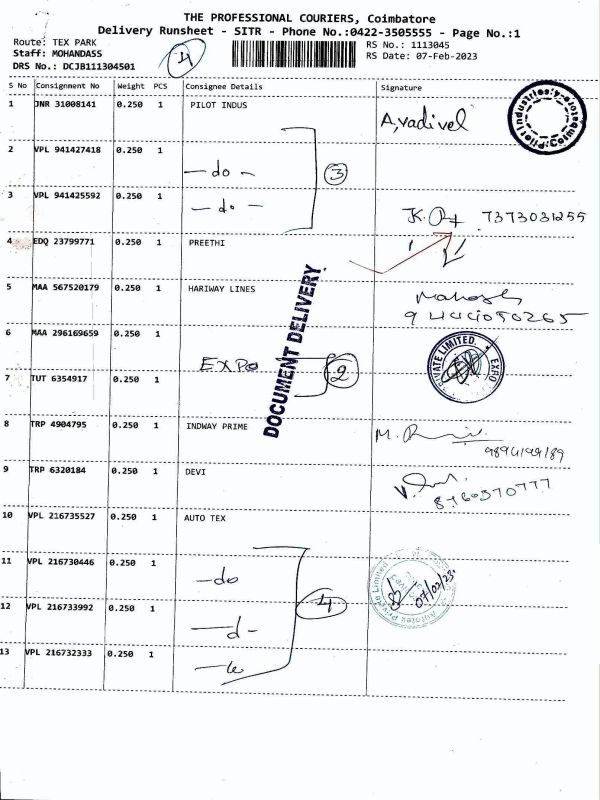 THE PROFESSIONAL COURIERS, Coimbatore
Delivery Runsheet - SITR - Phone No.:0422-3505555 - Page No.:1
Route: TEX PARK
Staff: MOHANDASS
DRS No.: DCJB111304501
4
RS No.: 1113045
RS Date: 07-Feb-2023
S No Consignment No Weight PCS Consignee Details Signature
1 JNR 31008141 0.250 1 PILOT INDUS
A,vadivel
2 VPL 941427418 0.250 1
-do-
3
3 VPL 941425592 0.250 1
-do-
7373031255
4 EDQ 23799771 0.250 1 PREETHI
5 MAA 567520179 0.250 1 HARIWAY LINES
DOCUMENT DELIVERY
6 MAA 296169659 0.250 1
PRIVATE LIMITED. EXPO
EXPO
2
7 TUT 6354917 0.250 1
8 TRP 4904795 0.250 1 INDWAY PRIME
M.
9 TRP 6320184 0.250 1 DEVI
V.
8760370777
10 VPL 216735527 0.250 1 AUTO TEX
11 VPL 216730446 0.250 1
-do
4
07/02/23
Autotex Private Limited
12 VPL 216733992 0.250 1
-d-
13 VPL 216732333 0.250 1